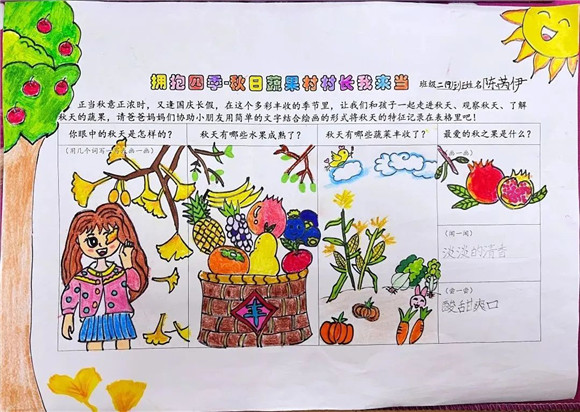 拥抱四季·秋日蔬果村村长我来当
班级 姓名 陈 伊
正当秋意正浓时，又逢国庆长假，在这个多彩丰收的季节里，让我们和孩子一起走进秋天、观察秋天、了解
秋天的蔬果，请爸爸妈妈们协助小朋友用简单的文字结合绘画的形式将秋天的特征记录在表格里吧！
你眼中的秋天是怎样的？
（用几个词写 画一画）
秋天有哪些水果成熟了？
丰
秋天有哪些蔬菜丰收了？
最爱的秋之果是什么？
画一画）
（闻一闻）
淡淡的清香
（尝一尝）
酸甜爽口